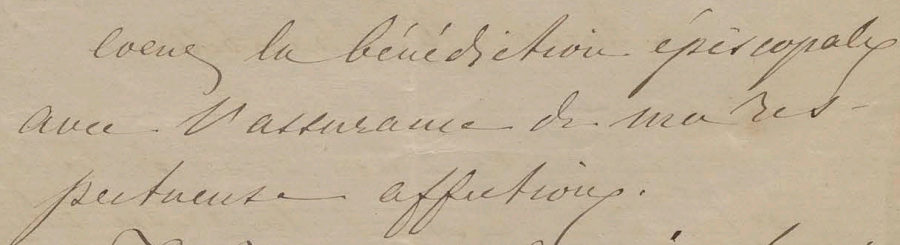 coeur la bénédiction épiscopale
avec l'assurance de ma res-
pectueuse affection.